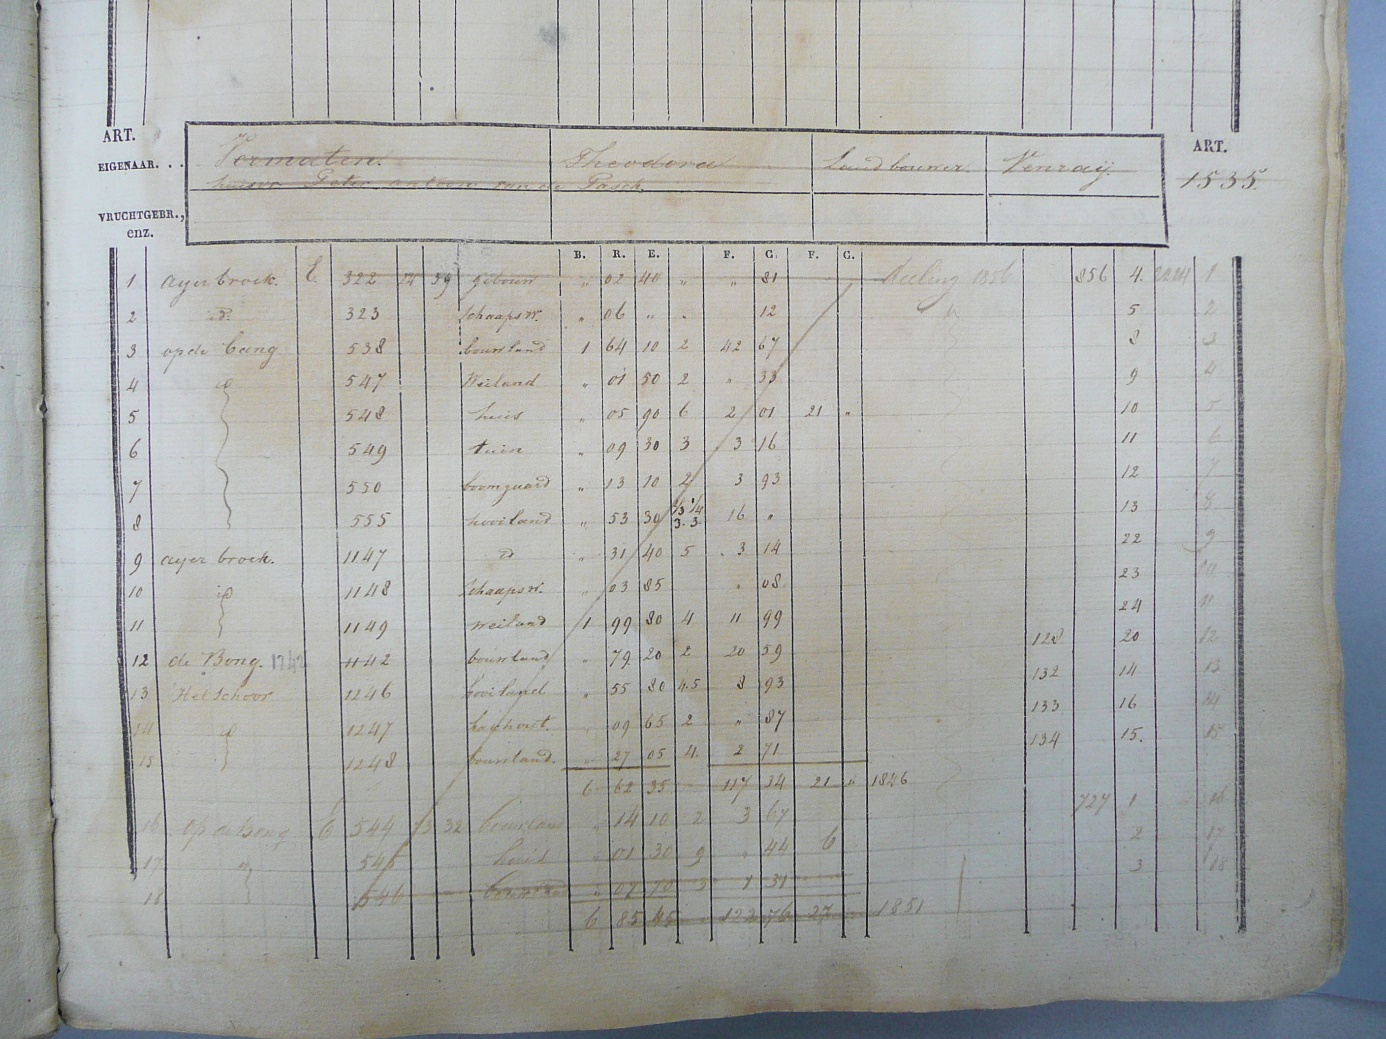 ART.
EIGENAAR. . . Vermaten. Theodora Landbouwer. Venraÿ. ART. 1535.
huisvr Peter antoon van de Pasch.
VRUCHTGEBR., enz.
B. R. E. F. C. F. C.
1 ayerbroek. E 322 14 39 gebouw " 02 40 " " 81 deeling 1856 856 4. 1
2 d° 323 Schaapsw. " 06 " . 12 5 2
3 op de bong 538 bouwland 1 64 10 2 42 67 8 3
4 d° 547 Weiland " 01 50 2 " 33 9 4
5 548 huis " 05 90 6 2 01 21 " 10 5
6 549 tuin " 09 30 3 3 16 11 6
7 550 boomgaard " 13 10 2 3 93 12 7
8 555 hooiland " 53 30 2/3 1/4 3. 3. 16 " 13 8
9 ayer broek. 1147 d° " 31 40 5 3 14 22 9
10 d° 1148 Schaapsw. " 03 85 " 08 23 10
11 1149 Weiland 1 99 80 4 11 99 24 11
12 de Bong. 1242 1142 bouwland " 79 20 2 20 59 128 20 12
13 Het Schoor 1246 hooiland " 55 80 4.5 8 93 132 14 13
14 d° 1247 hakhout. " 09 65 2 " 87 133 16 14
15 1248 bouwland. " 27 05 4. 2 71 134 15. 15
6 62 35 117 34 21 " 1846
16 op de Bong 6 544 13 32 bouwland " 14 10 2 3 67 727 1 16
17 " 545 huis " 01 30 9 " 44 6 2 17
18 546 bouwland " 07 70 3 1 31 3 18
6 85 45 122 76 27 1851